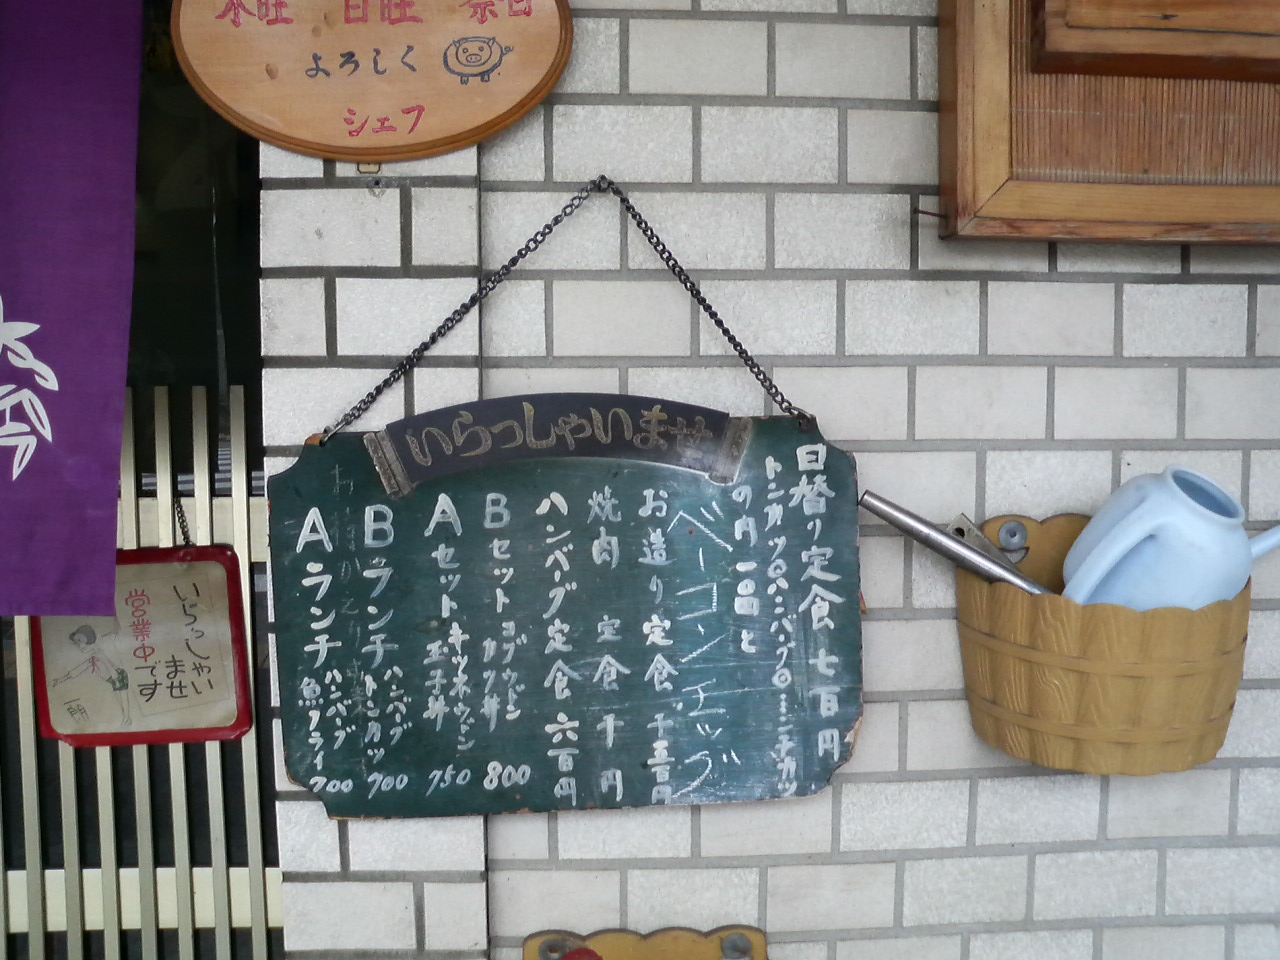 木曜 日曜 祭日
よろしく
シェフ
いらっしゃいませ
日替り定食 七百円
トンカツ◎ハンバーグ◎ミンチカツ
の内一品と
ベーコンエッグ
お造り定食 千五百円
焼肉 定食 千円
ハンバーグ定食 六百円
Bセット コブウドン カツ丼 800
Aセット キツネウドン 玉子丼 750
Bランチ ハンバーグ トンカツ 700
Aランチ ハンバーグ 魚フライ 700
いらっしゃい
ませ
営業中です